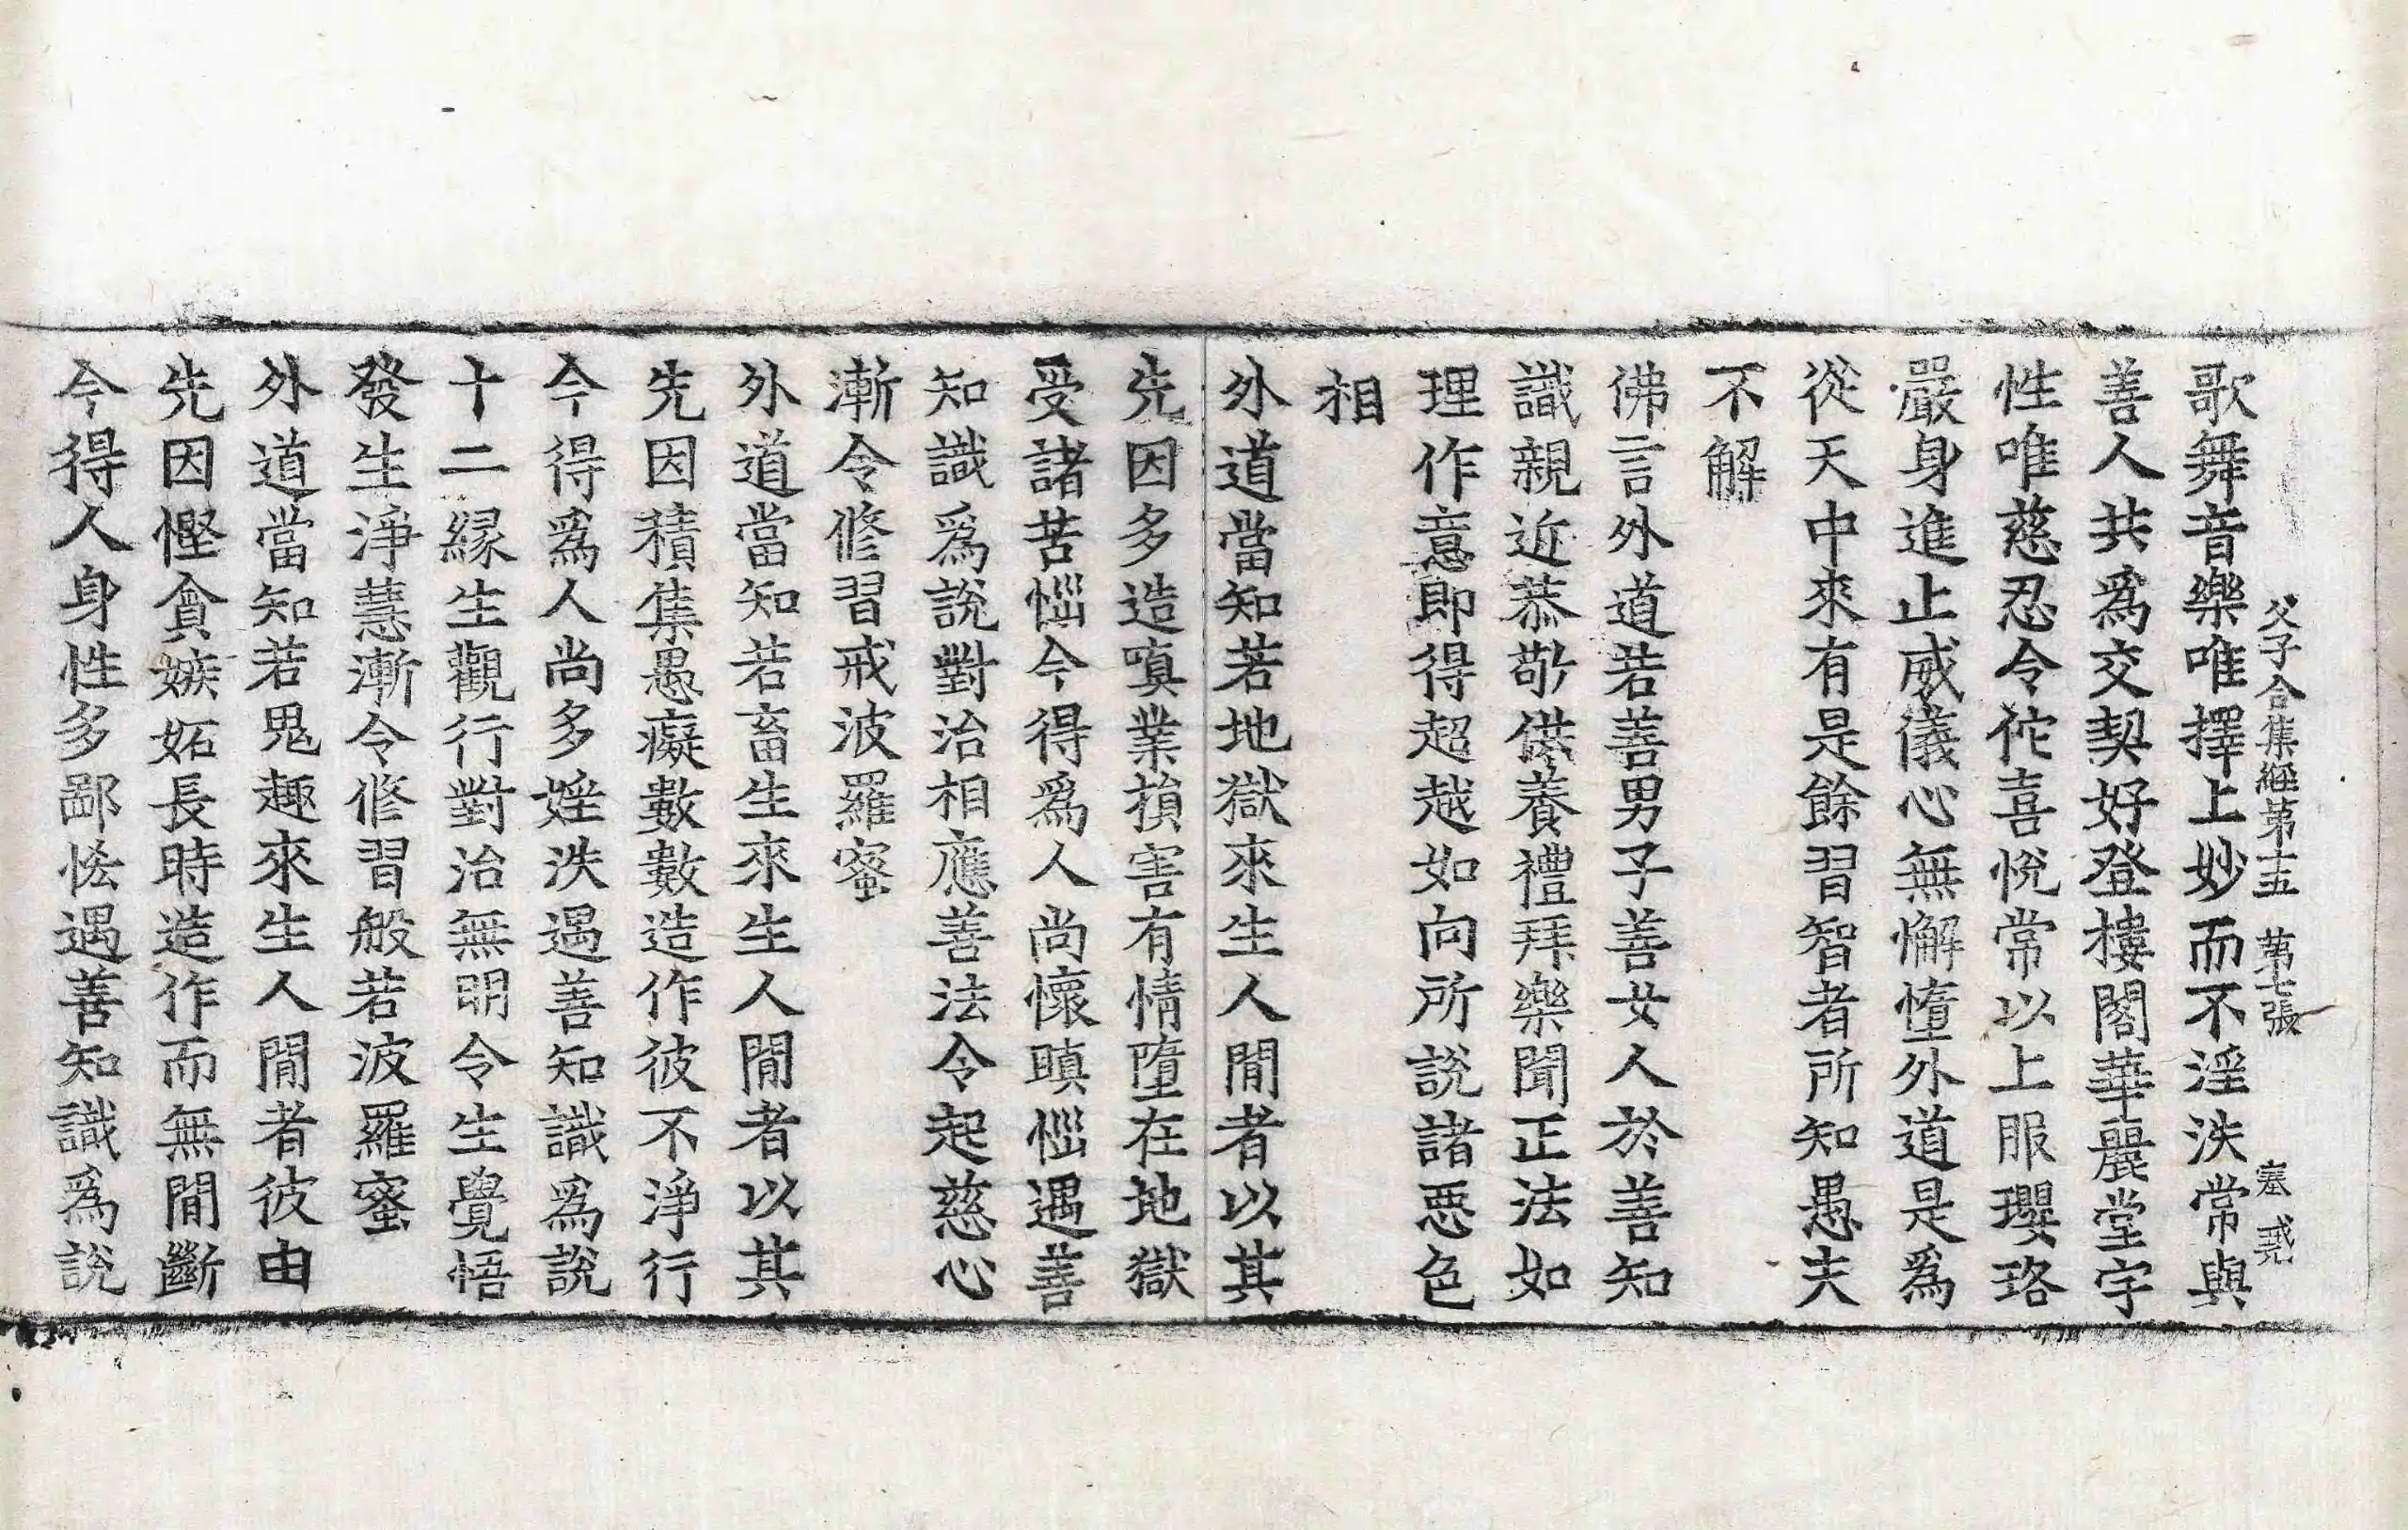 父子合集經第十五 第七張 塞 貳
歌舞音樂唯擇上妙而不淫泆常與
善人共爲交契好登樓閣華麗堂宇
性唯慈忍令佗喜悅常以上服瓔珞
嚴身進止威儀心無懈憻外道是爲
從天中來有是餘習智者所知愚夫
不解
佛言外道若善男子善女人於善知
識親近恭敬供養禮拜樂聞正法如
理作意即得超越如向所說諸惡色
相
外道當知若地獄來生人間者以其
先因多造嗔業損害有情墮在地獄
受諸苦惱今得爲人尚懷瞋惱遇善
知識爲說對治相應善法令起慈心
漸令修習戒波羅蜜
外道當知若畜生來生人間者以其
先因積集愚癡數數造作彼不淨行
今得爲人尚多婬泆遇善知識爲說
十二緣生觀行對治無明令生覺悟
發生淨慧漸令修習般若波羅蜜
外道當知若鬼趣來生人間者彼由
先因慳貪嫉妬長時造作而無間斷
今得人身性多鄙悋遇善知識爲說